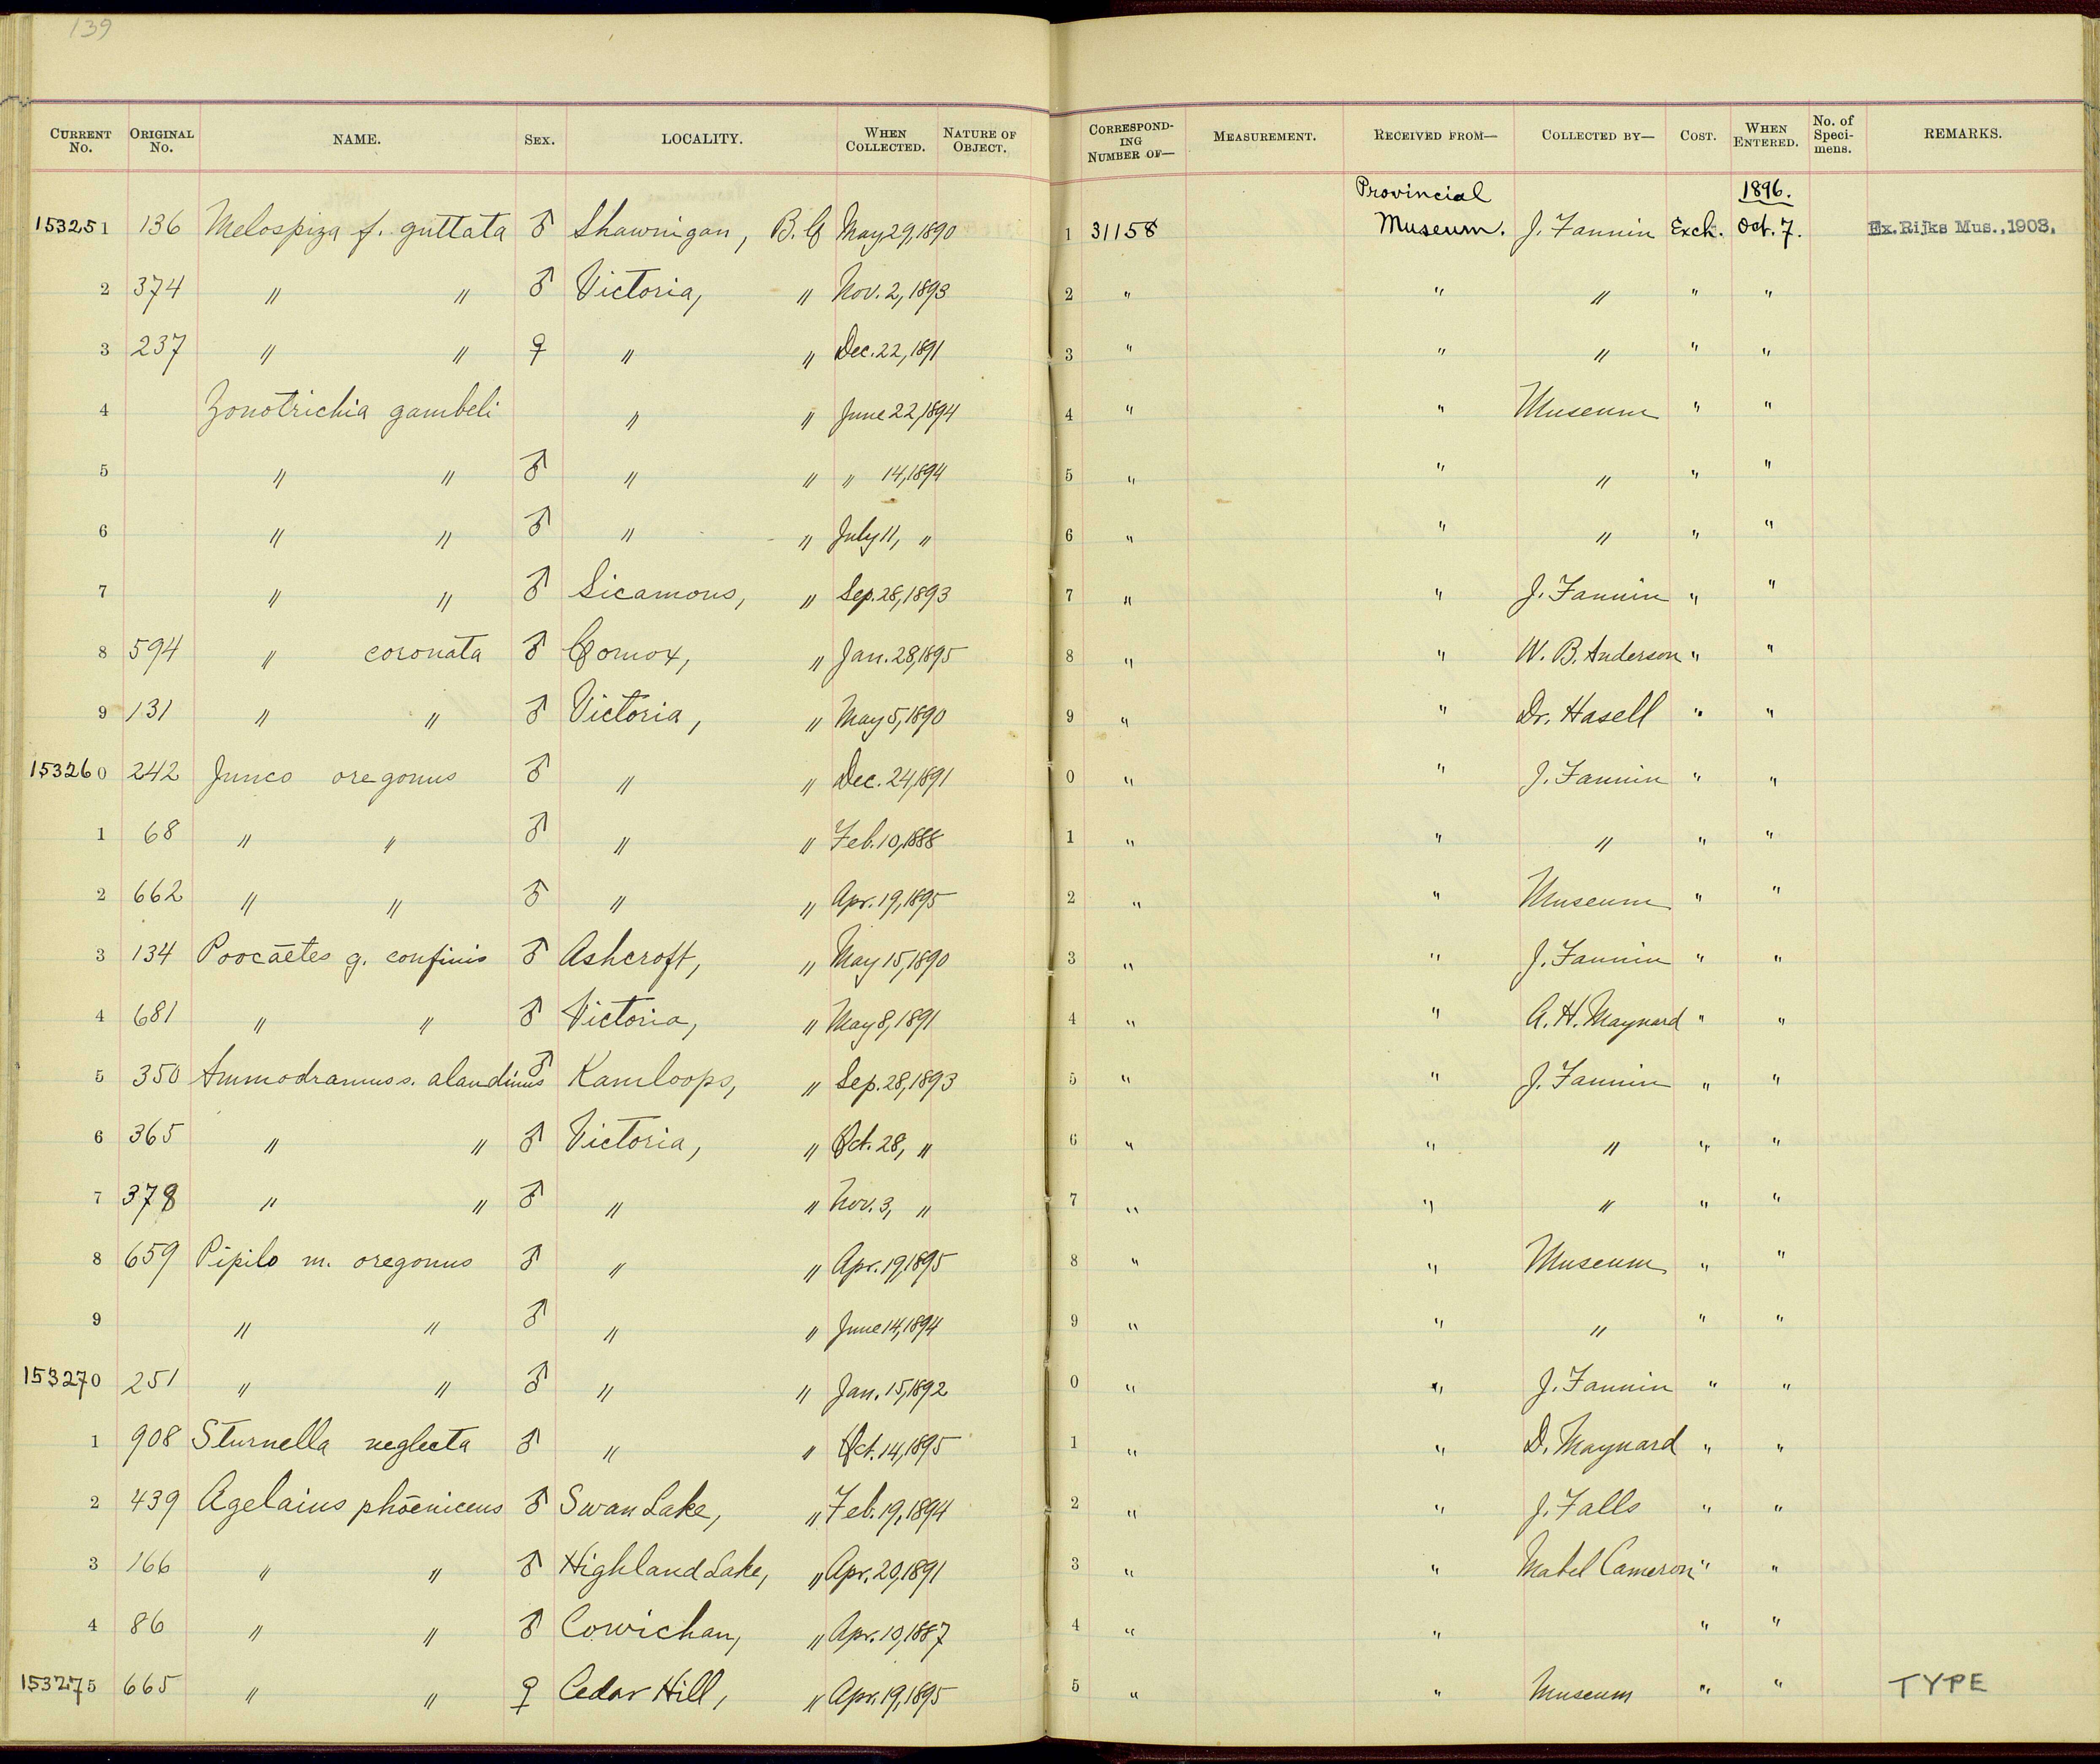 139
CURRENT No. ORIGINAL No. NAME. SEX. LOCALITY. WHEN COLLECTED. NATURE OF OBJECT. CORRESPONDING NUMBER OF— MEASUREMENT. RECEIVED FROM— COLLECTED BY— COST. WHEN ENTERED. No. of Specimens. REMARKS.
Provincial 1896.
153251 136 Melospiza f. guttata ♂ Shawnigan, B.C. May 29, 1890 1 31158 Museum. J. Fannin Exch. Oct. 7. Ex. Rijks Mus., 1903.
2 374 " " ♂ Victoria, " Nov. 2, 1893 2 " " " " "
3 237 " " ♀ " " Dec. 22, 1891 3 " " " " "
4 Zonotrichia gambeli " " June 22, 1894 4 " " Museum " "
5 " " ♂ " " " 14, 1894 5 " " " " "
6 " " ♂ " " July 11, " 6 " " " " "
7 " " ♂ Sicamous, " Sep. 28, 1893 7 " " J. Fannin " "
8 594 " coronata ♂ Comox, " Jan. 28, 1895 8 " " W. B. Anderson " "
9 131 " " ♂ Victoria, " May 5, 1890 9 " " Dr. Hasell " "
153260 242 Junco oregonus ♂ " " Dec. 24, 1891 0 " " J. Fannin " "
1 68 " " ♂ " " Feb. 10, 1888 1 " " " " "
2 662 " " ♂ " " Apr. 19, 1895 2 " " Museum " "
3 134 Poocaetes g. confinis ♂ Ashcroft, " May 15, 1890 3 " " J. Fannin " "
4 681 " " ♂ Victoria, " May 8, 1891 4 " " A. H. Maynard " "
5 350 Ammodramus s. alaudinus ♂ Kamloops, " Sep. 28, 1893 5 " " J. Fannin " "
6 365 " " ♂ Victoria, " Oct. 28, " 6 " " " " "
7 378 " " ♂ " " Nov. 3, " 7 " " " " "
8 659 Pipilo m. oregonus ♂ " " Apr. 19, 1895 8 " " Museum " "
9 " " ♂ " " June 14, 1894 9 " " " " "
153270 251 " " ♂ " " Jan. 15, 1892 0 " " J. Fannin " "
1 908 Sturnella neglecta ♂ " " Oct. 14, 1895 1 " " D. Maynard " "
2 439 Agelaius phoeniceus ♂ Swan Lake, " Feb. 19, 1894 2 " " J. Falls " "
3 166 " " ♂ Highland Lake, " Apr. 20, 1891 3 " " Mabel Cameron " "
4 86 " " ♂ Cowichan, " Apr. 10, 1887 4 " " " "
153275 665 " " ♀ Cedar Hill, " Apr. 19, 1895 5 " " Museum " " TYPE